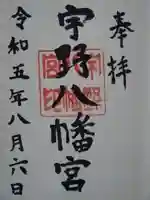 奉拝
宇野八幡宮
令和五年八月六日